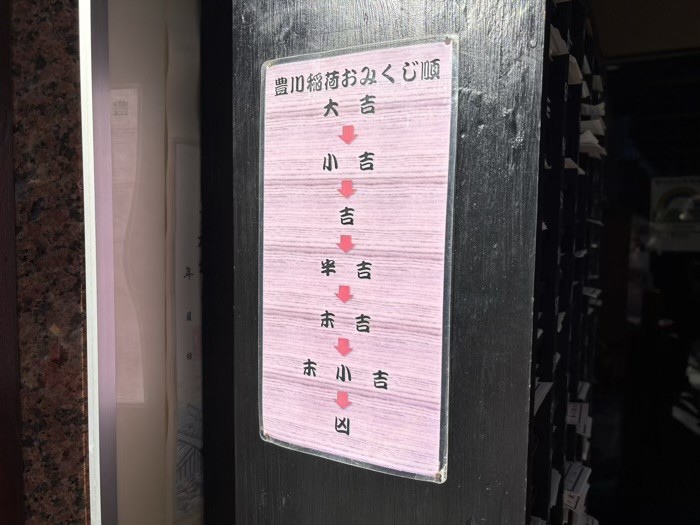 豊川稲荷おみくじ順
大吉
小吉
吉
半吉
末吉
末小吉
凶
年月日